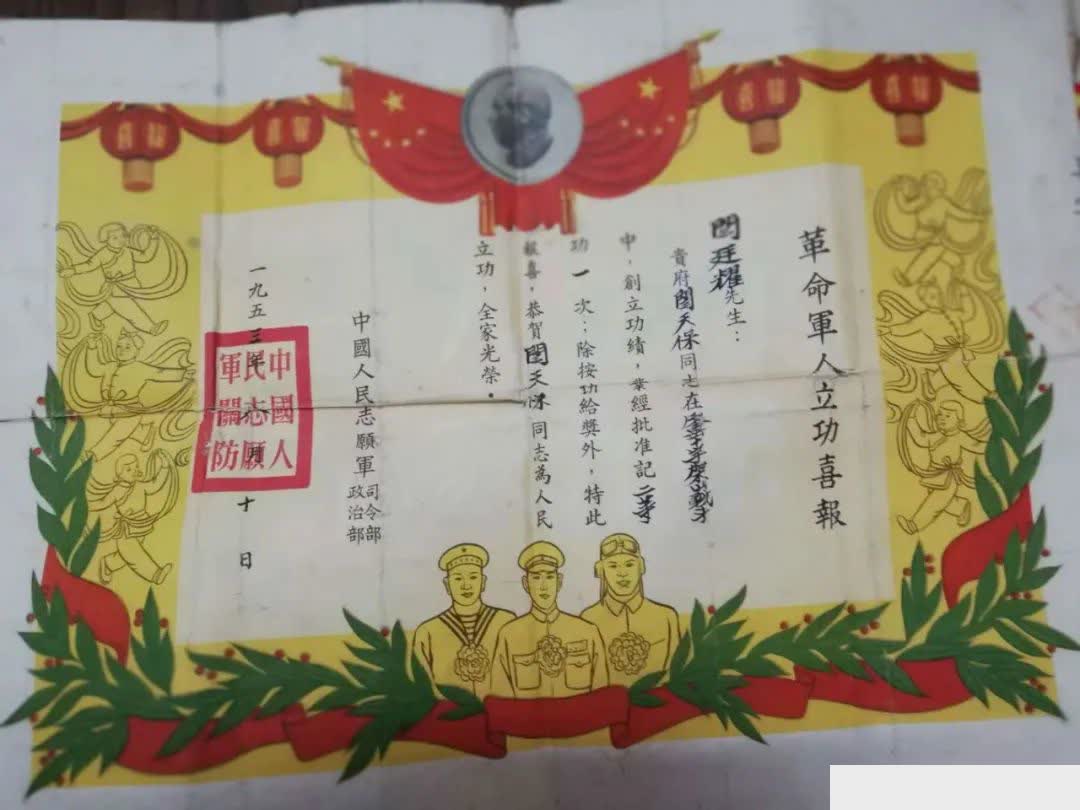 革命軍人立功喜報
閔廷耀先生：
貴府閔天保同志在
中，創立功績，業經批准記二等
功一次：除按功給獎外，特此
報喜，恭賀閔天保同志為人民
立功，全家光榮。
中國人民志願軍司令部
政治部
一九五三年月十日
中國人
民志願
軍關防